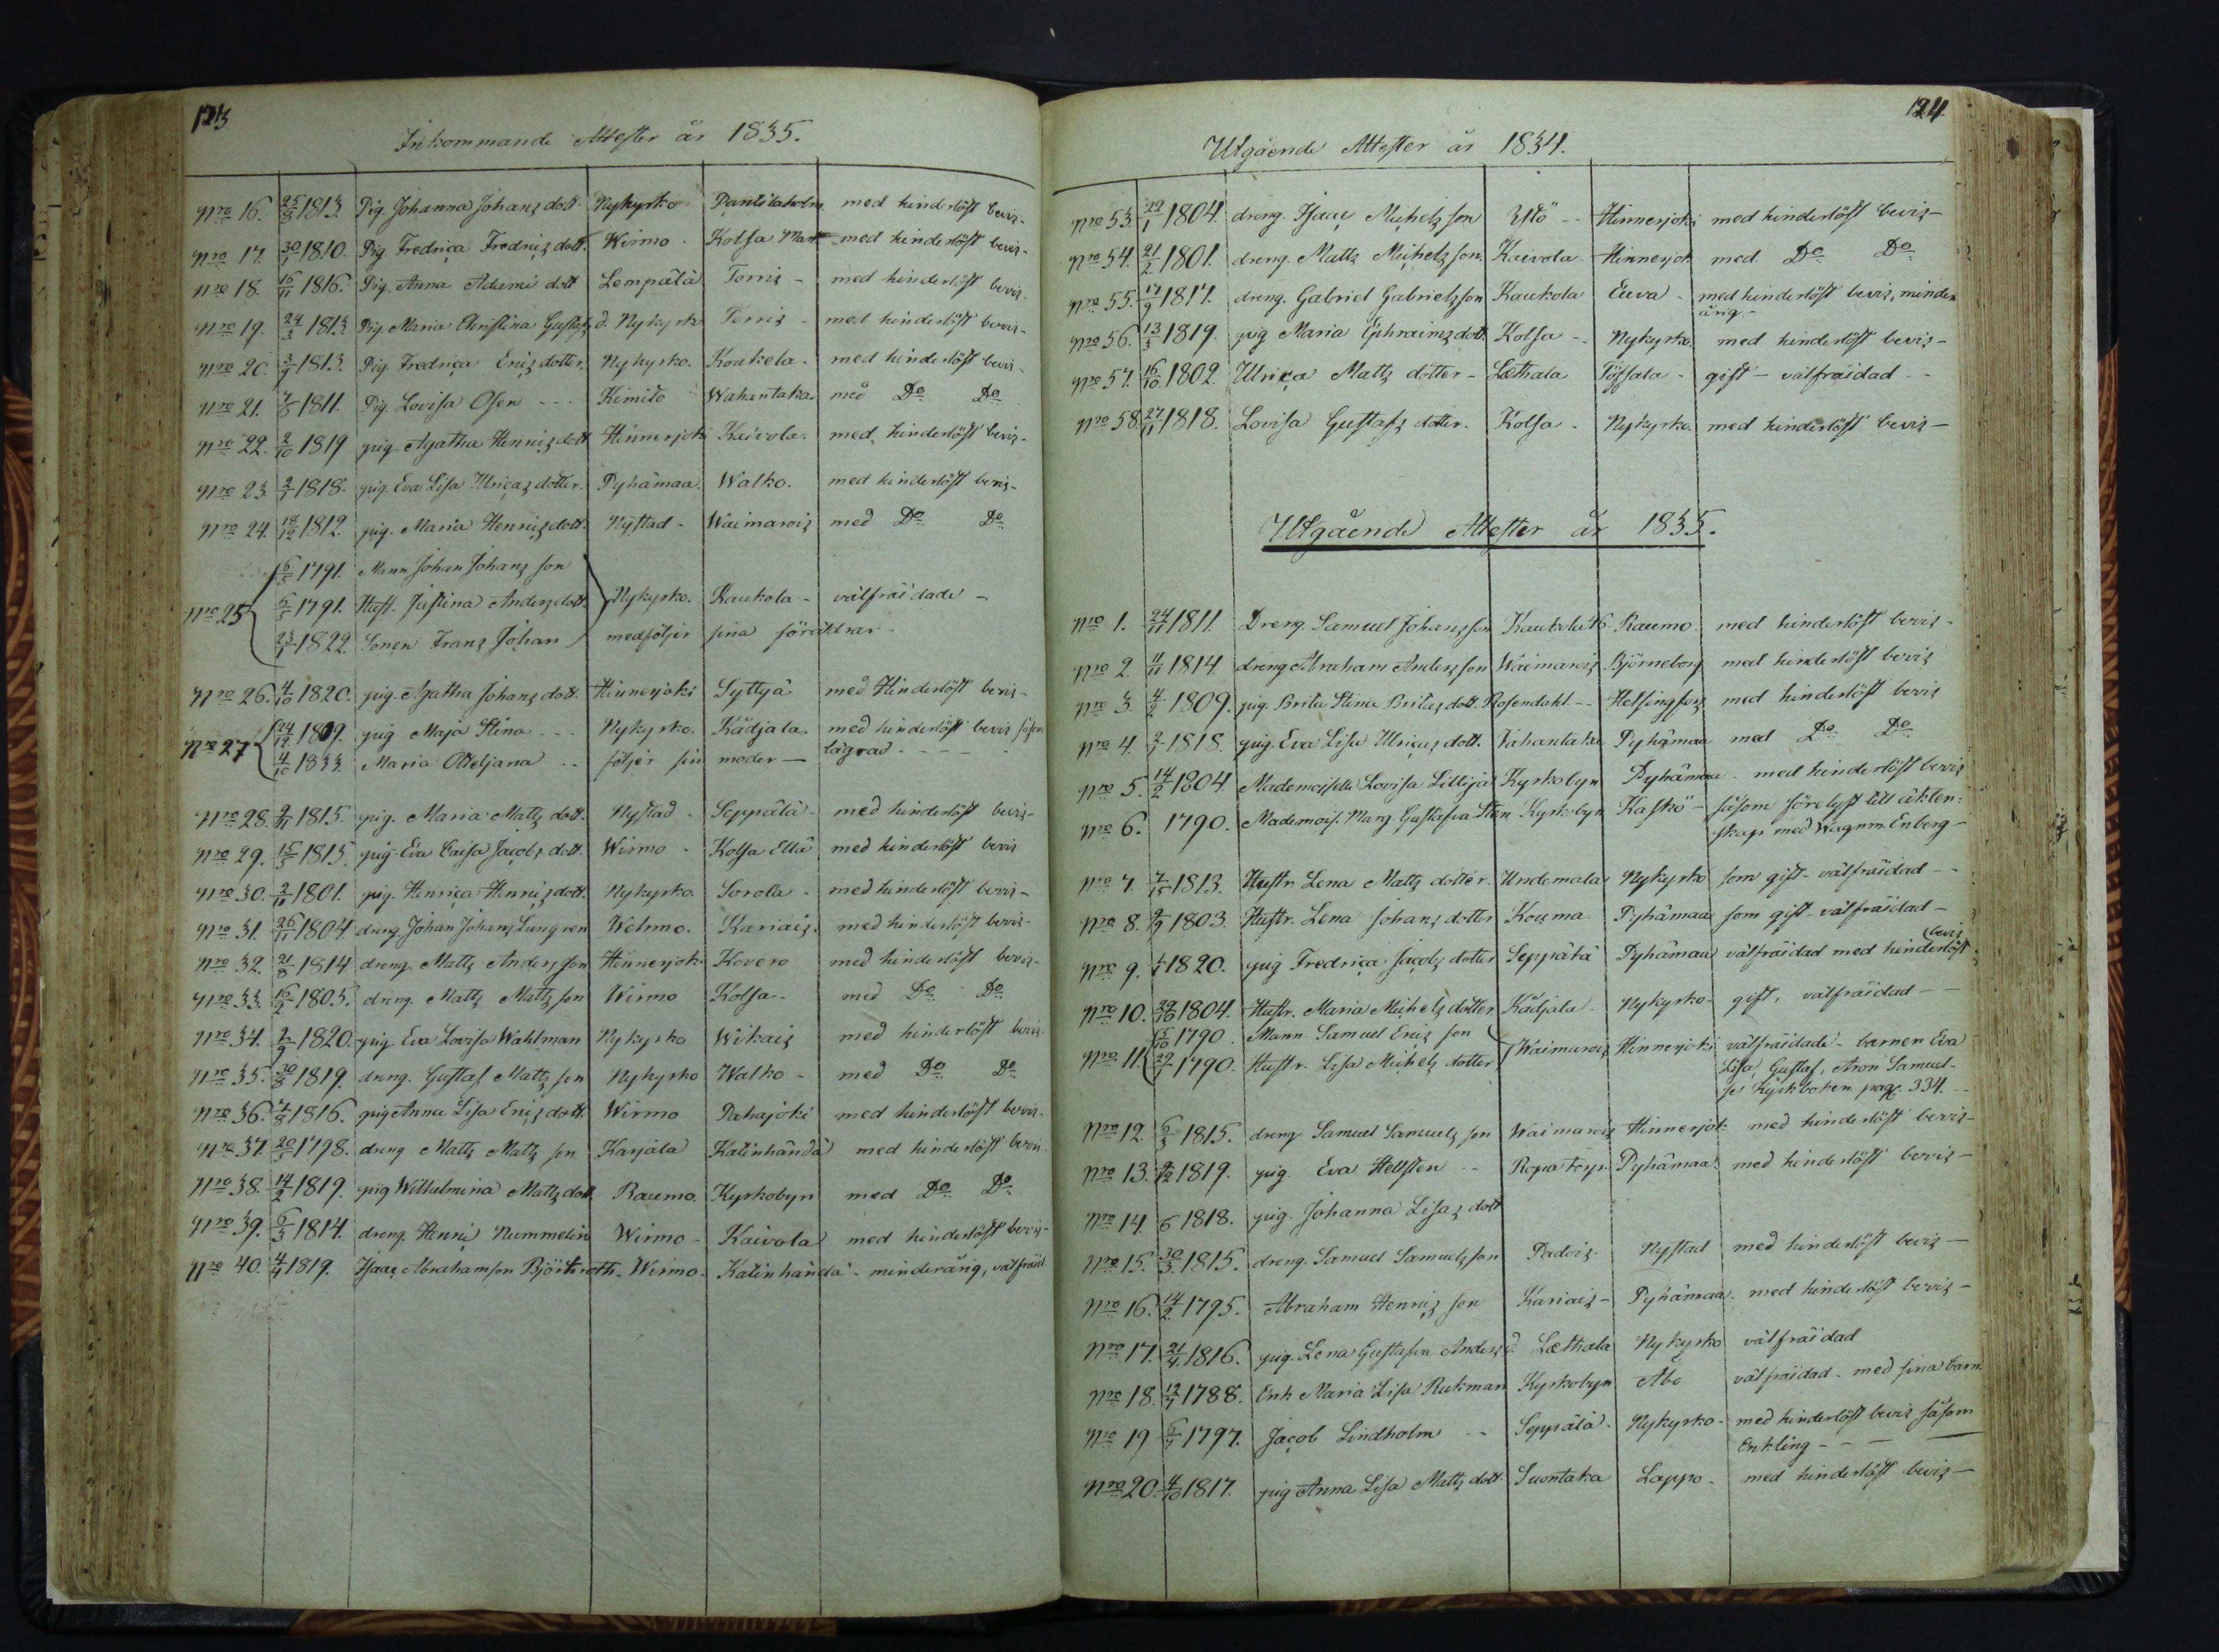 123
Inkommande Attester år 1835.
Nro 16. 25/8 1813. Pig. Johanna Johans dott. Nykyrko Pantilaholm med hinderlöst bevis-
Nro 17. 30/1 1810. Pig Fredrica Fredrics dott. Wirmo - Kolsa Matt med hinderlöst bevis-
Nro 18. 16/11 1816. Pig. Anna Adami dott Lempälä Torris - med hinderlöst bevis-
Nro 19. 24/3 1813 Pig. Maria Christina Gustafs d. Nykyrko Torris - med hinderlöst bevis-
Nro 20. 1813. Pig. Fredrica Erics dotter. Nykyrko. Koukela. med hinderlöst bevis-
Nro 21. 1811. Pig. Lovisa Osen --- Kimito Wahantaka. med Do Do
Nro 22. 2/10 1819 pig. Agatha Henrics dott Hinnerjoki Kaivola. med hinderlöst bevis-
Nro 23 2/1 1818. pig. Eva Lisa Ulricas dotter. Pyhämaa. Walko. med hinderlöst bevis-
Nro 24. 18/12 1812. pig. Maria Henrics dott. Nystad - Waimarois med Do Do
6/5 1791. Mann Johan Johans son
Nro 25 6/5 1791. Hust. Justina Anders dott. Nykyrko. Kaukola - välfräidade -
23/1 1822. Sonen Frans Johan medföljer sina föräldrar -
Nro 26. 4/10 1820. pig. Agatha Johans dott. Hinnerjoki Syttyä med Hinderlöst bevis-
Nro 27 24/12 1809. pig Maja Stina --- Nykyrko. Kådjala. med hinderlöst bevis såsom
4/10 1833. Maria Otteljana -- följer sin moder — lägrad - - - -
Nro 28. 2/11 1815. pig. Maria Matts dott. Nystad - Seppälä - med hinderlöst bevis-
Nro 29. 15/5 1815. pig. Eva Caisa Jacobs dott. Wirmo - Kolsa Ella med hinderlöst bevis
Nro 30. 2/11 1801. pig. Henrica Henrics dott. Nykyrko. Sorola - med hinderlöst bevis-
Nro 31. 26/11 1804 dreng. Johan Johans Lungren Wehmo. Kariais. med hinderlöst bevis-
Nro 32. 21/8 1814 dreng. Matts Anders son Hinnerjoki Kovero med hinderlöst bevis-
Nro 33. 16/2 1805. dreng. Matts Matts son Wirmo Kolsa - med Do Do
Nro 34. 2/9 1820. pig Eva Lovisa Wahlman Nykyrko Wikais med hinderlöst bevis-
Nro 35. 30/8 1819. dreng. Gustaf Matts son Nykyrko Walko - med Do Do
Nro 36. 4/8 1816. pig Anna Lisa Erics dott. Wirmo Pahajoki med hinderlöst bevis-
Nro 37. 20/5 1798. dreng Matts Matts son Karjala Katinhändä med hinderlöst bevis
Nro 38. 14/2 1819. pig Wilhelmina Matts dott Raumo. Kyrkobyn med Do Do
Nro 39. 6/3 1814. dreng. Henric Nummelin Wirmo - Kaivola med hinderlöst bevis-
Nro 40. 4/4 1819. Isaac Abrahamson Björkroth. Wirmo. Katinhändä - minderång, välfräid.
124
Utgående Attester år 1834.
Nro 53. 22/1 1804. dreng. Isaac Michels son Ystö -- Hinnerjoki med hinderlöst bevis-
Nro 54. 21/2 1801. dreng. Matts Michels son. Kaivola. Hinnerjok. med Do Do
Nro 55. 17/9 1817. dreng. Gabriel Gabriels son Kaukola Euva - med hinderlöst bevis, minder
ång -
Nro 56. 13/5 1819. pig Maria Ephraims dott. Kolsa -- Nykyrko med hinderlöst bevis-
Nro 57. 16/10 1802. Ulrica Matts dotter - Lethala Töfsala - gift - välfräidad --
Nro 58. 27/11 1818. Lovisa Gustafs dotter. Kolsa - Nykyrko. med hinderlöst bevis-
Utgående Attester år 1835.
Nro 1. 24/11 1811. Dreng Samuel Johans son Raumo. med hinderlöst bevis-
Nro 2. 11/11 1814. dreng Abraham Anders son Waimarois Björneborg med hinderlöst bevis
Nro 3. 4/2 1809. pig. Brita Stina Britas dott. Rosendahl -- Helsingfors med hinderlöst bevis
Nro 4. 2/1 1818. pig. Eva Lisa Ulricas dott. Vahantaka Pyhämaa med Do Do
Nro 5. 14/2 1804. Mademoiselle Lovisa Lilljeja Kyrkobyn Pyhämaa - med hinderlöst bevis
Nro 6. 1790. Mademois. Marg. Gustafva Sten Kyrkobyn Kaskö - såsom förelyst till äkten:
skap med Wagnm. Enberg -
Nro 7. 1813. Hustr. Lena Matts dotter. Undemala Nykyrko som gift - välfräidad --
Nro 8. 1803. Hustr. Lena Johans dotter Kouma Pyhämaa som gift - välfräidad -
Nro 9. 1820. pig Fredrica Jacobs dotter Seppälä Pyhämaa välfräidad med hinderlöst bevis
Nro 10. 29/10 1804. Hustr. Maria Michels dotter. Kådjala. Nykyrko - gift, välfräidad --
15/10 1790. Mann. Samuel Erics son
Nro 11. 29/1 1790. Hustr. Lisa Michels dotter Waimarois Hinnerjoki välfräidade - barnen Eva
Lisa, Gustaf, Aron Samuel -
se Kyrkboken pag. 334. --
Nro 12. 6/5 1815. dreng Samuel Samuels son Waimarois Hinnerjok. med hinderlöst bevis-
Nro 13. 1819. pig. Eva Hellsten -- Ropa torp. Pyhämaa. med hinderlöst bevis-
Nro 14. 6 1818. pig. Johanna Lisas dott
Nro 15. 30/3 1815. dreng. Samuel Samuels son Padois - Nystad med hinderlöst bevis-
Nro 16. 14/2 1795. Abraham Henrics son Kariais - Pyhämaa - med hinderlöst bevis-
Nro 17. 21/4 1816. pig. Lena Gustafva Anders d. Lethala Nykyrko välfräidad
Nro 18. 12/4 1788. Enk. Maria Lisa Rukman Kyrkobyn Åbo välfräidad - med sina barn.
Nro 19 6/7 1797. Jacob Lindholm -- Seppälä - Nykyrko - med hinderlöst bevis såsom
Enkling - - —
Nro 20. 4/10 1817. pig Anna Lisa Matts dott. Suontaka Lappo - med hinderlöst bevis-